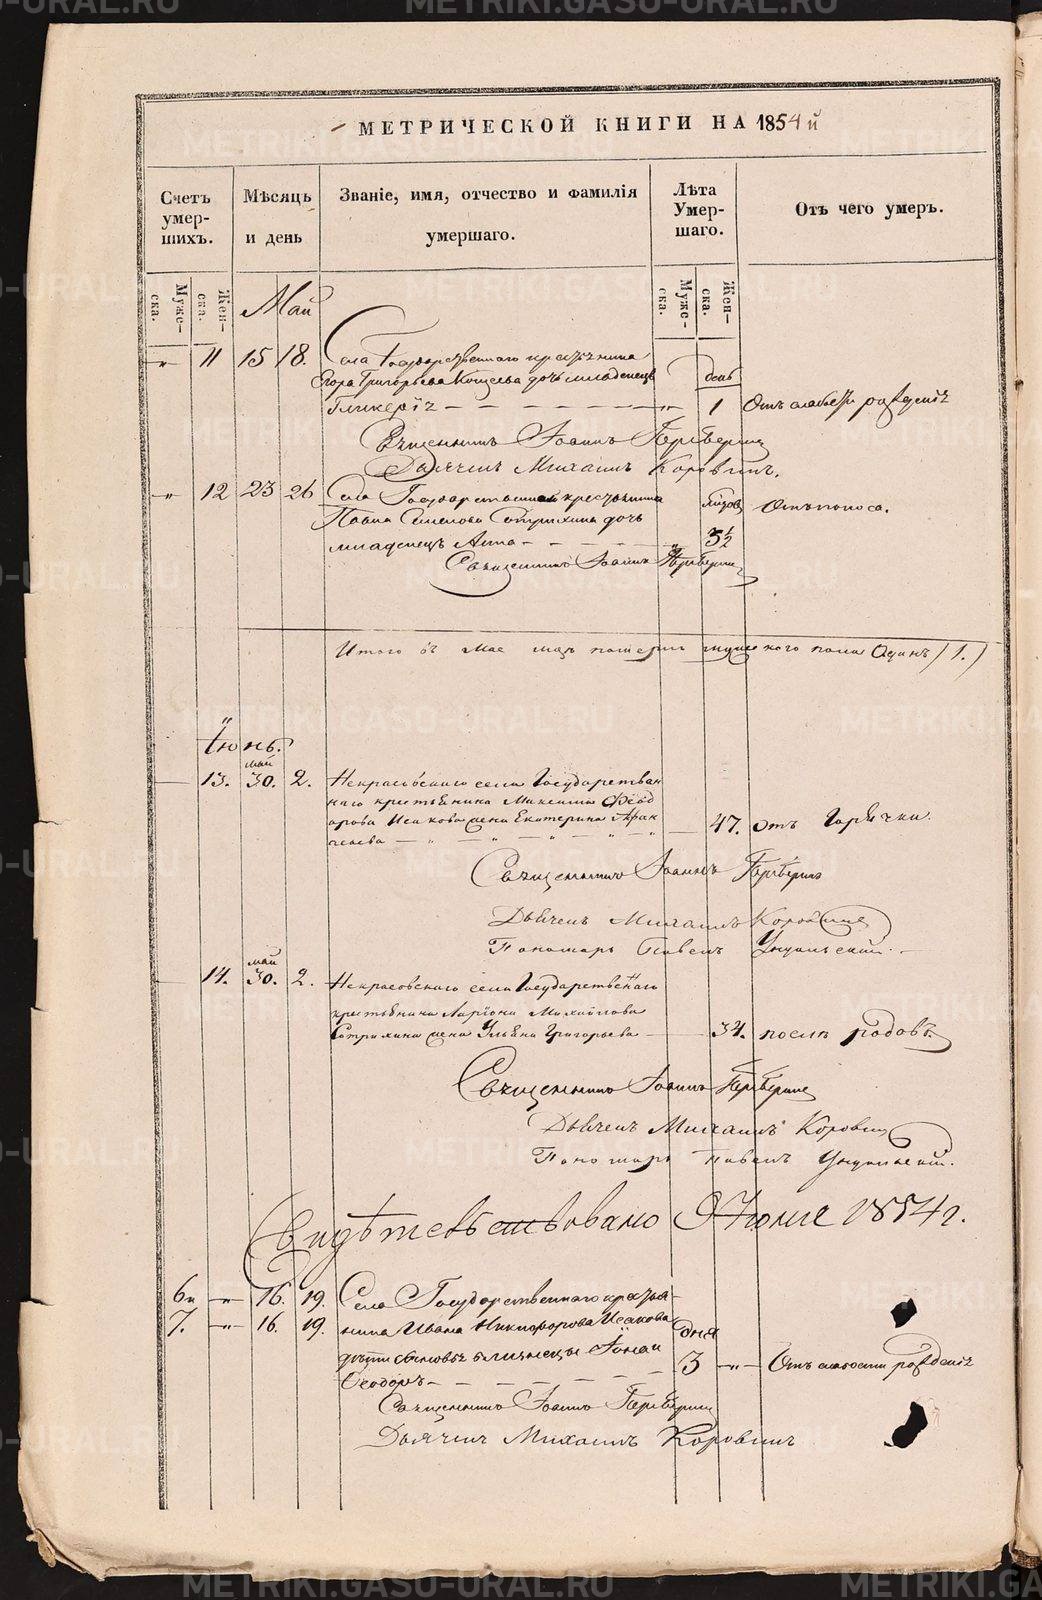 МЕТРИЧЕСКОЙ КНИГИ НА 1854й
Счетъ умер-шихъ.
Мѣсяцъ и день
Званіе, имя, отчество и фамилія умершаго.
Лѣта Умер-шаго.
Отъ чего умеръ.
Муже-ска. Жен-ска.
Муже-ска. Жен-ска.
Май
" 11 15 18. Села Государственнаго крестьянина
Егора Григорьева дочь младенецъ день
Гликерія " 1 Отъ слабости рожденія
Священникъ Іоаннъ
Дьячекъ Михаилъ Коровинъ.
" 12 23 26 Села Государственнаго крестьянина
Павла Семенова Сотрихина дочь Отъ поноса.
младенецъ Анна " 3½
Священникъ Іоаннъ
Итого въ мае мцѣ померло мужескаго пола Одинъ (1.)
Іюнь.
май
13. 30. 2. Некрасовскаго села Государствен
наго крестьянина Максима Ѳеод
орова Исакова жена Екатерина Афан
асьева 47. отъ Горячки.
Священникъ Іоаннъ
Дьячекъ Михаилъ Коровинъ
Пономарь Павелъ
май
14. 30. 2. Некрасовскаго села Государственнаго
крестьянина Ларіона Михайлова
Сотрихина жена Ульяна Григорьева 34. послѣ родовъ.
Священникъ Іоаннъ
Дьячекъ Михаилъ Коровинъ
Пономарь Павелъ
Свидѣтельствовано 9 Іюня 1854 г.
6 " 16. 19. Села Государственнаго крестья-
7. " 16. 19. нина Ивана Никифорова Исакова дня
дѣти близнецы Іона и 3 " Отъ слабости рожденія
Ѳеодоръ
Священникъ Іоаннъ
Дьячекъ Михаилъ Коровинъ
METRIKI.GASO-URAL.RU